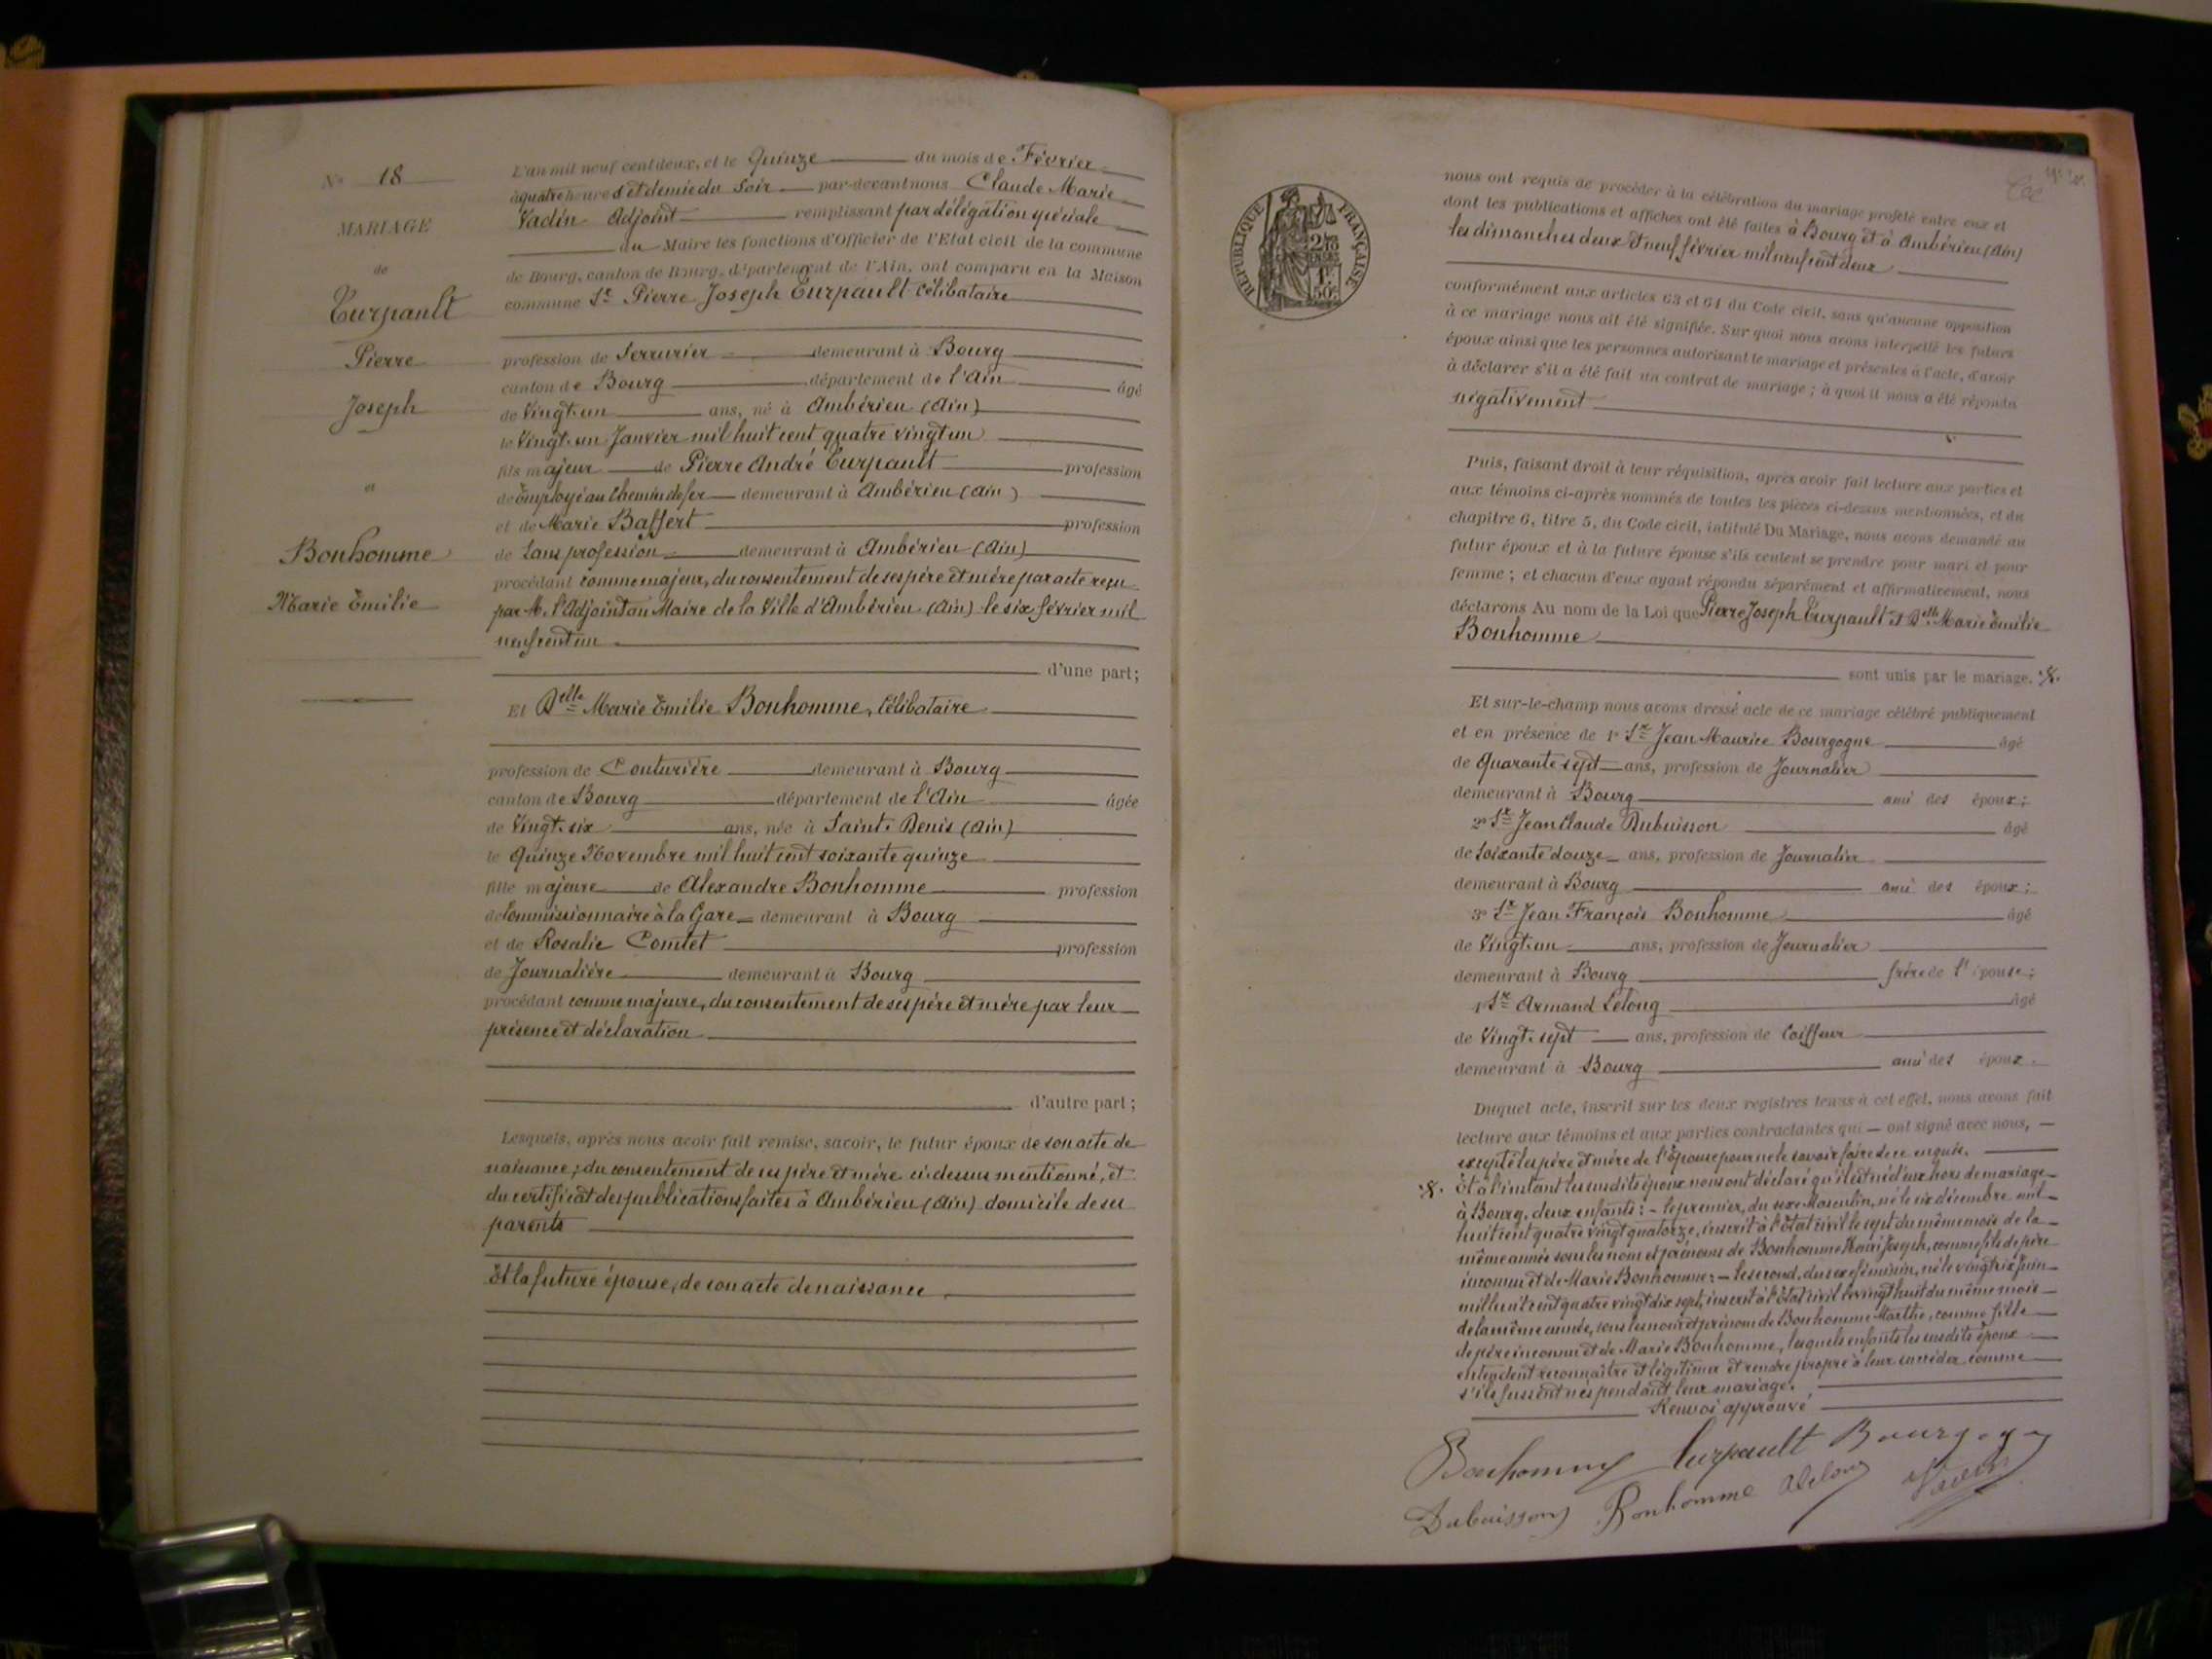 N° 18
MARIAGE
de
Turpault
Pierre
Joseph
et
Bonhomme
Marie Emilie
L'an mil neuf cent deux, et le Quinze du mois de Février
à quatre heures et demie du Soir par-devant nous Claude Marie
Vadin Adjoint remplissant par délégation spéciale
du Maire les fonctions d'Officier de l'Etat civil de la commune
de Bourg, canton de Bourg, département de l'Ain, ont comparu en la Maison
commune Sr Pierre Joseph Turpault célibataire
profession de Serrurier demeurant à Bourg
canton de Bourg département de l'Ain âgé
de Vingt-un ans, né à Ambérieu (Ain)
le Vingt-un Janvier mil huit cent quatre vingt un
fils majeur de Pierre André Turpault profession
de Employé au Chemin de fer demeurant à Ambérieu (Ain)
et de Marie Baffert profession
de Sans profession demeurant à Ambérieu (Ain)
procédant comme majeur, du consentement de ses père et mère par acte reçu
par M. l'Adjoint au Maire de la Ville d'Ambérieu (Ain) le six février mil
neuf cent un
d'une part;
Et Delle Marie Emilie Bonhomme, Célibataire
profession de Couturière demeurant à Bourg
canton de Bourg département de l'Ain âgée
de Vingt-six ans, née à Saint-Denis (Ain)
le Quinze Novembre mil huit cent soixante quinze
fille majeure de Alexandre Bonhomme profession
de Commissionnaire à la Gare demeurant à Bourg
et de Rosalie Comtet profession
de Journalière demeurant à Bourg
procédant comme majeure, du consentement de ses père et mère par leur
présence et déclaration
d'autre part;
Lesquels, après nous avoir fait remise, savoir, le futur époux de son acte de
naissance; du consentement de ses père et mère ci-dessus mentionné, et
du certificat des publications faites à Ambérieu (Ain) domicile de ses
parents
Et la future épouse, de son acte de naissance
RÉPUBLIQUE FRANÇAISE
nous ont requis de procéder à la célébration du mariage projeté entre eux et
dont les publications et affiches ont été faites à Bourg et à Ambérieu (Ain)
les dimanches deux et neuf février mil neuf cent deux
conformément aux articles 63 et 64 du Code civil, sans qu'aucune opposition
à ce mariage nous ait été signifiée. Sur quoi nous avons interpellé les futurs
époux ainsi que les personnes autorisant le mariage et présentes à l'acte, d'avoir
à déclarer s'il a été fait un contrat de mariage; à quoi il nous a été répondu
négativement
Puis, faisant droit à leur réquisition, après avoir fait lecture aux parties et
aux témoins ci-après nommés de toutes les pièces ci-dessus mentionnées, et du
chapitre 6, titre 5, du Code civil, intitulé Du Mariage, nous avons demandé au
futur époux et à la future épouse s'ils veulent se prendre pour mari et pour
femme; et chacun d'eux ayant répondu séparément et affirmativement, nous
déclarons Au nom de la Loi que Pierre Joseph Turpault et Delle Marie Emilie
Bonhomme
sont unis par le mariage.
Et sur-le-champ nous avons dressé acte de ce mariage célébré publiquement
et en présence de 1° Sr Jean Maurice Bourgogne âgé
de Quarante sept ans, profession de Journalier
demeurant à Bourg ami des époux;
2° Sr Jean Claude Dubuisson âgé
de Soixante douze ans, profession de Journalier
demeurant à Bourg ami des époux;
3° Sr Jean François Bonhomme âgé
de Vingt-un ans, profession de Journalier
demeurant à Bourg frère de l'épouse;
4° Sr Armand Lelong âgé
de Vingt-sept ans, profession de Coiffeur
demeurant à Bourg ami des époux.
Duquel acte, inscrit sur les deux registres tenus à cet effet, nous avons fait
lecture aux témoins et aux parties contractantes qui ont signé avec nous,
excepté les père et mère de l'épouse pour ne le savoir faire de ce enquis.
Et à l'instant les susdits époux nous ont déclaré qu'il est né d'eux hors de mariage
à Bourg, deux enfants: - le premier, du sexe Masculin, né le six décembre mil
huit cent quatre vingt quatorze, inscrit à l'état civil le sept du même mois de la
même année sous les nom et prénoms de Bonhomme Henri Joseph, comme fils de père
inconnu et de Marie Bonhomme; - le second, du sexe féminin, né le vingt six Juin
mil huit cent quatre vingt dix sept, inscrit à l'état civil le vingt huit du même mois
de la même année, sous les nom et prénom de Bonhomme Marthe, comme fille
de père inconnu et de Marie Bonhomme, lesquels enfants les susdits époux
entendent reconnaître et légitimer et rendre propre à leur succéder comme
s'ils fussent nés pendant leur mariage.
Renvoi approuvé
Bonhomme Turpault Bourgogne
Dubuisson Bonhomme A Lelong Vadin